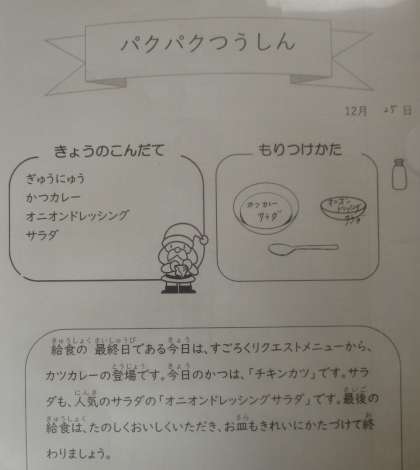 パクパクつうしん
12月 25日
きょうのこんだて
ぎゅうにゅう
かつカレー
オニオンドレッシング
サラダ
もりつけかた
カツカレー
サラダ
オニオン
ドレッシング
サラダ
給食の 最終日である今日は、すごろくリクエストメニューから、
カツカレーの登場です。今日のかつは、「チキンカツ」です。サラ
ダも、人気のサラダの「オニオンドレッシングサラダ」です。最後の
給食は、たのしくおいしくいただき、お皿もきれいにかたづけて終
わりましょう。